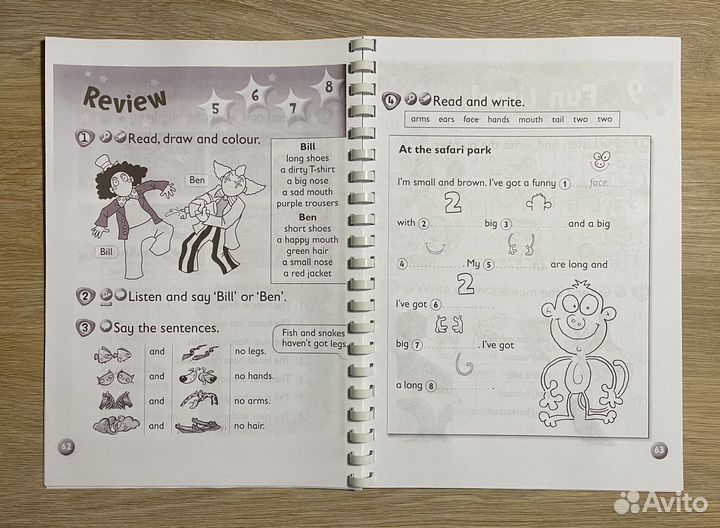 Review
5
6
7
8
1 Read, draw and colour.
Bill
long shoes
a dirty T-shirt
a big nose
a sad mouth
purple trousers
Ben
short shoes
a happy mouth
green hair
a small nose
a red jacket
Ben
Bill
2 Listen and say ‘Bill’ or ‘Ben’.
3 Say the sentences.
Fish and snakes
haven't got legs.
and no legs.
and no hands.
and no arms.
and no hair.
62
4 Read and write.
arms ears face hands mouth tail two two
At the safari park
I'm small and brown. I've got a funny 1 face
2
with 2 big 3 and a big
4 . My 5 are long and
2
I've got 6
big 7 . I've got
a long 8
63
Avito